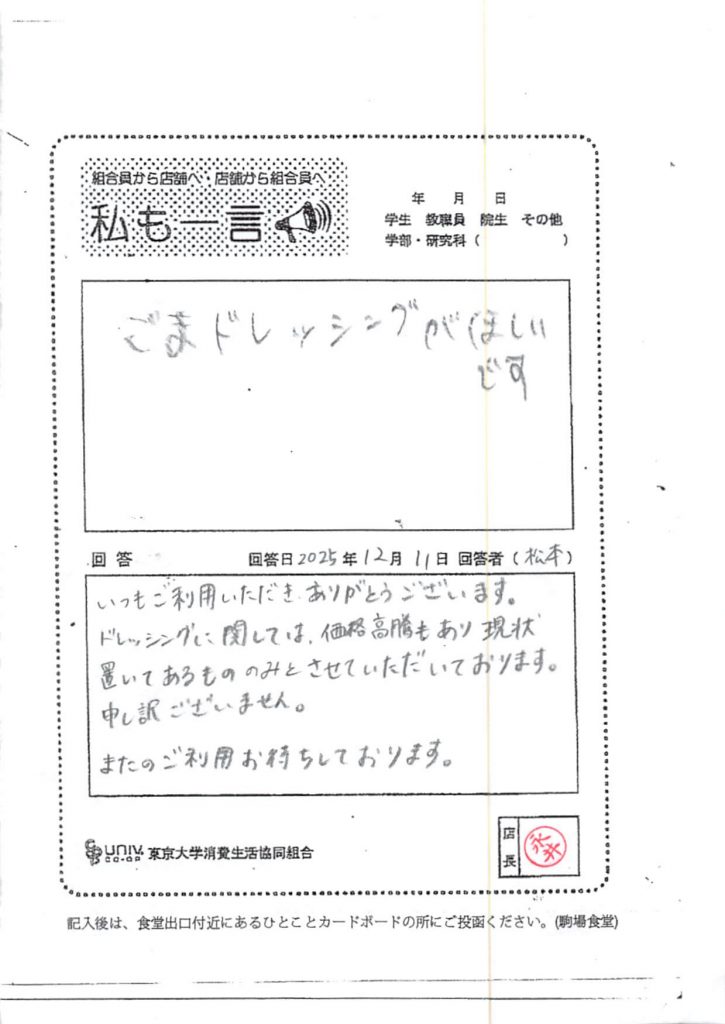 組合員から店舗へ・店舗から組合員へ
私も一言
年 月 日
学生 教職員 院生 その他
学部・研究科（ ）
ごまドレッシングがほしい
です
回答 回答日2025年12月11日 回答者（松本）
いつもご利用いただき、ありがとうございます。
ドレッシングに関しては、価格高騰もあり現状
置いてあるもののみとさせていただいております。
申し訳ございません。
またのご利用お待ちしております。
UNIV. CO-OP 東京大学消費生活協同組合
店長
記入後は、食堂出口付近にあるひとことカードボードの所にご投函ください。(駒場食堂)